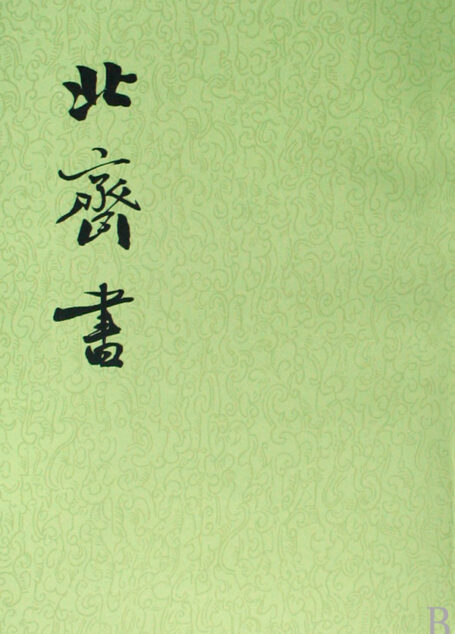 北齊書
B